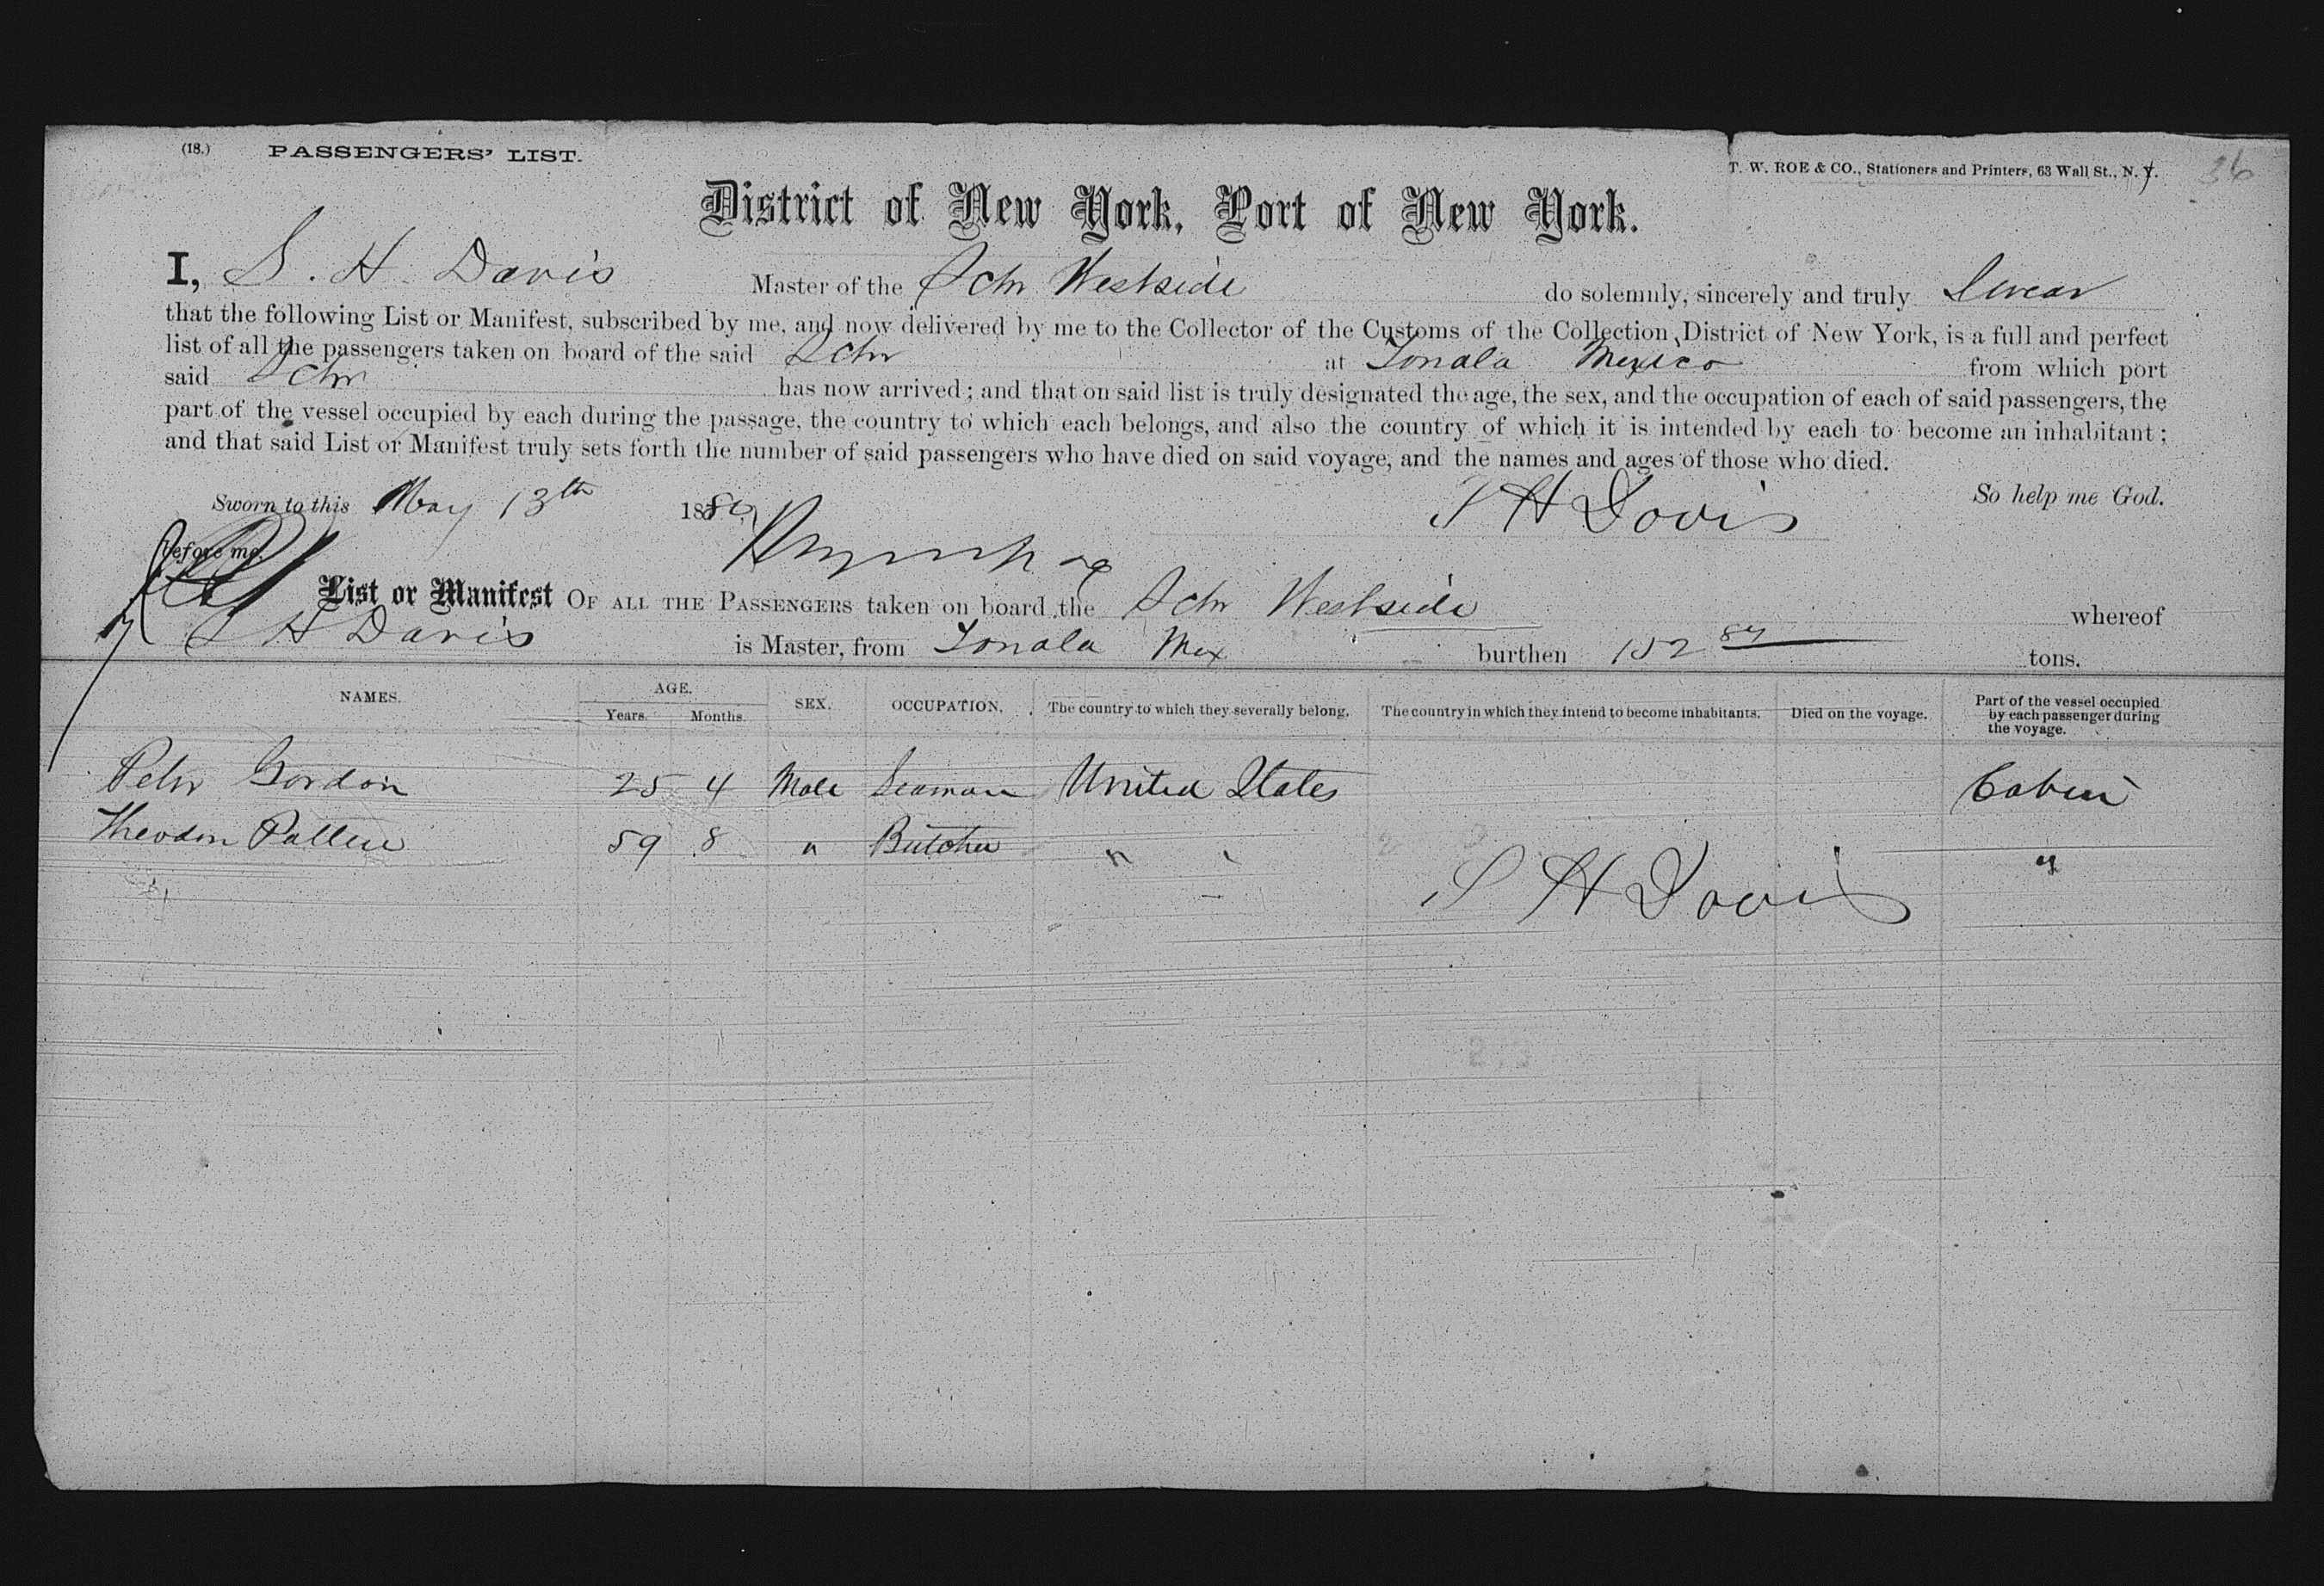 (18.) PASSENGERS' LIST. T. W. ROE & CO., Stationers and Printers, 63 Wall St., N. Y. 36
District of New York, Port of New York.
I, S. H. Davis Master of the Schr Westside do solemnly, sincerely and truly Swear
that the following List or Manifest, subscribed by me, and now delivered by me to the Collector of the Customs of the Collection District of New York, is a full and perfect
list of all the passengers taken on board of the said Schr at Tonala Mexico from which port
said Schr has now arrived; and that on said list is truly designated the age, the sex, and the occupation of each of said passengers, the
part of the vessel occupied by each during the passage, the country to which each belongs, and also the country of which it is intended by each to become an inhabitant;
and that said List or Manifest truly sets forth the number of said passengers who have died on said voyage, and the names and ages of those who died.
So help me God.
Sworn to this May 13th 188 S H Davis
before me.
List or Manifest OF ALL THE PASSENGERS taken on board the Schr Westside whereof
S H Davis is Master, from Tonala Mex burthen 152 tons.
NAMES. AGE. Years. Months. SEX. OCCUPATION. The country to which they severally belong. The country in which they intend to become inhabitants. Died on the voyage. Part of the vessel occupied by each passenger during the voyage.
Petr Gordon 25 4 Male Seaman United States Cabin
Theodore 59 8 " Butcher " " "
S H Davis